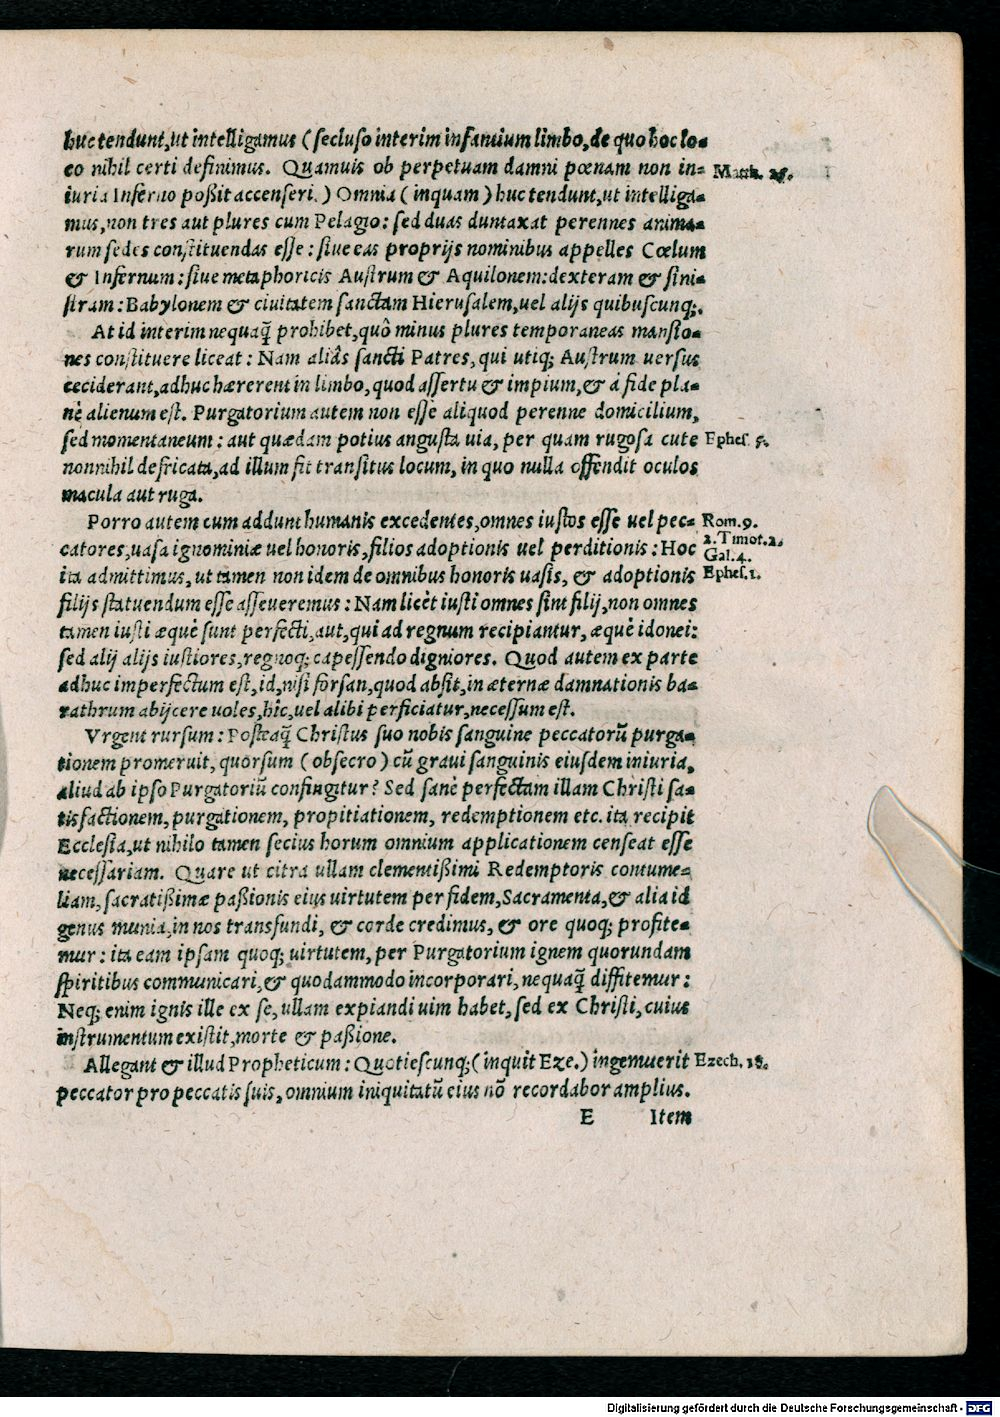 huc tendunt, ut intelligamus (secluso interim infantium limbo, de quo hoc lo-
co nihil certi definimus. Quamuis ob perpetuam damni pœnam non in- Matth. 25.
iuria Inferno poßit accenseri.) Omnia (inquam) huc tendunt, ut intelliga-
mus, non tres aut plures cum Pelagio: sed duas duntaxat perennes anima-
rum sedes constituendas esse: siue eas proprijs nominibus appelles Cœlum
& Infernum: siue metaphoricis Austrum & Aquilonem: dexteram & sini-
stram: Babylonem & ciuitatem sanctam Hierusalem, uel alijs quibuscunq;.
At id interim nequaq̃ prohibet, quò minus plures temporaneas mansio-
nes constituere liceat: Nam aliâs sancti Patres, qui utiq; Austrum uersus
ceciderant, adhuc hærerent in limbo, quod assertu & impium, & á fide pla-
nè alienum est. Purgatorium autem non esse aliquod perenne domicilium,
sed momentaneum: aut quædam potius angusta uia, per quam rugosa cute Ephes. 5.
nonnihil defricata, ad illum fit transitus locum, in quo nulla offendit oculos
macula aut ruga.
Porro autem cum addunt humanis excedentes, omnes iustos esse uel pec- Rom. 9.
catores, uasa ignominiæ uel honoris, filios adoptionis uel perditionis: Hoc 2. Timot. 2.
Gal. 4.
ita admittimus, ut tamen non idem de omnibus honoris uasis, & adoptionis Ephes. 1.
filijs statuendum esse asseueremus: Nam licèt iusti omnes sint filij, non omnes
tamen iusti æquè sunt perfecti, aut, qui ad regnum recipiantur, æquè idonei:
sed alij alijs iustiores, regnoq; capessendo digniores. Quod autem ex parte
adhuc imperfectum est, id, nisi forsan, quod absit, in æternæ damnationis ba-
rathrum abijcere uoles, hîc, uel alibi perficiatur, necessum est.
Vrgent rursum: Posteaq̃ Christus suo nobis sanguine peccatorũ purga-
tionem promeruit, quorsum (obsecro) cũ graui sanguinis eiusdem iniuria,
aliud ab ipso Purgatoriũ confingitur? Sed sanè perfectam illam Christi sa-
tisfactionem, purgationem, propitiationem, redemptionem etc. ita recipit
Ecclesia, ut nihilo tamen secius horum omnium applicationem censeat esse
necessariam. Quare ut citra ullam clementißimi Redemptoris contume-
liam, sacratißimæ paßionis eius uirtutem per fidem, Sacramenta, & alia id
genus munia, in nos transfundi, & corde credimus, & ore quoq; profite-
mur: ita eam ipsam quoq; uirtutem, per Purgatorium ignem quorundam
spiritibus communicari, & quodammodo incorporari, nequaq̃ diffitemur:
Neq; enim ignis ille ex se, ullam expiandi uim habet, sed ex Christi, cuius
instrumentum existit, morte & paßione.
Allegant & illud Propheticum: Quotiescunq; (inquit Eze.) ingemuerit Ezech. 18.
peccator pro peccatis suis, omnium iniquitatũ eius nõ recordabor amplius.
E Item
Digitalisierung gefördert durch die Deutsche Forschungsgemeinschaft - DFG